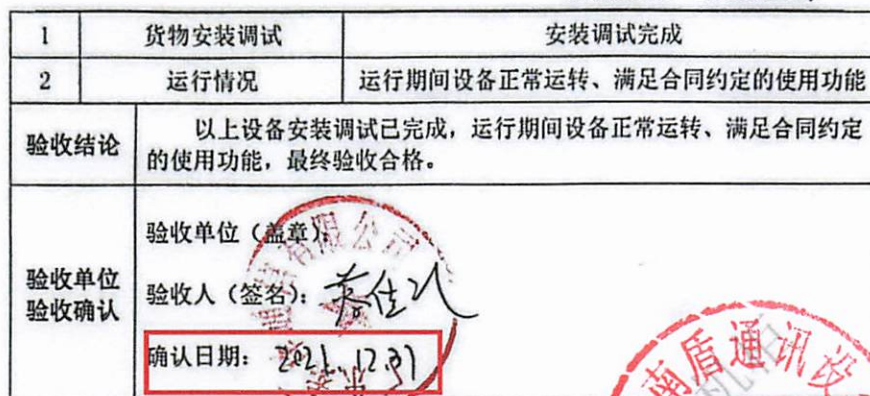 1 货物安装调试 安装调试完成
2 运行情况 运行期间设备正常运转、满足合同约定的使用功能
验收结论 以上设备安装调试已完成，运行期间设备正常运转、满足合同约定
的使用功能，最终验收合格。
验收单位（盖章）：
有限公司
验收单位
验收确认
验收人（签名）：
确认日期： 2021.12.31
南盾通讯设